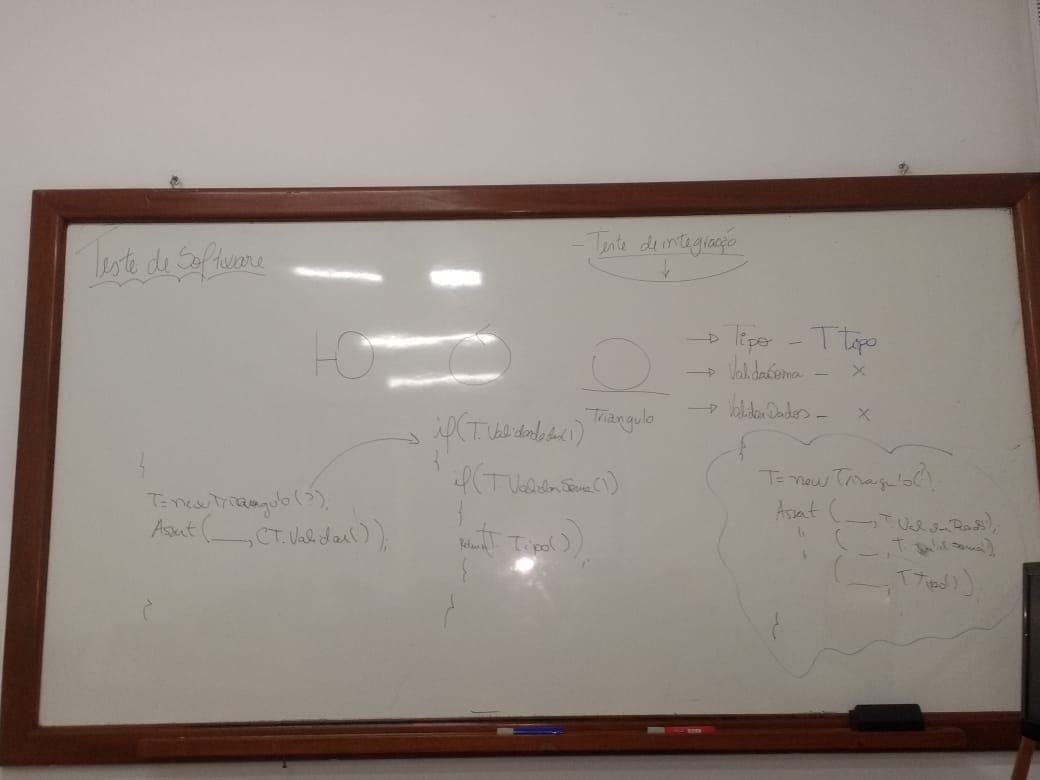 Teste de Software
- Teste de integração
→ Tipo - T tipo
→ ValidaSoma - x
→ ValidarDados - x
Triangulo
{
T=new Triangulo(?);
Assert (___, CT.Validar());
}
if(T.Validardados())
{
if(T.ValidarSoma())
{
Return T.Tipo();
}
}
{
T=new Triangulo(?);
Assert (___, T.ValidarDados());
" (___, T.
" (___, T.Tipo())
}